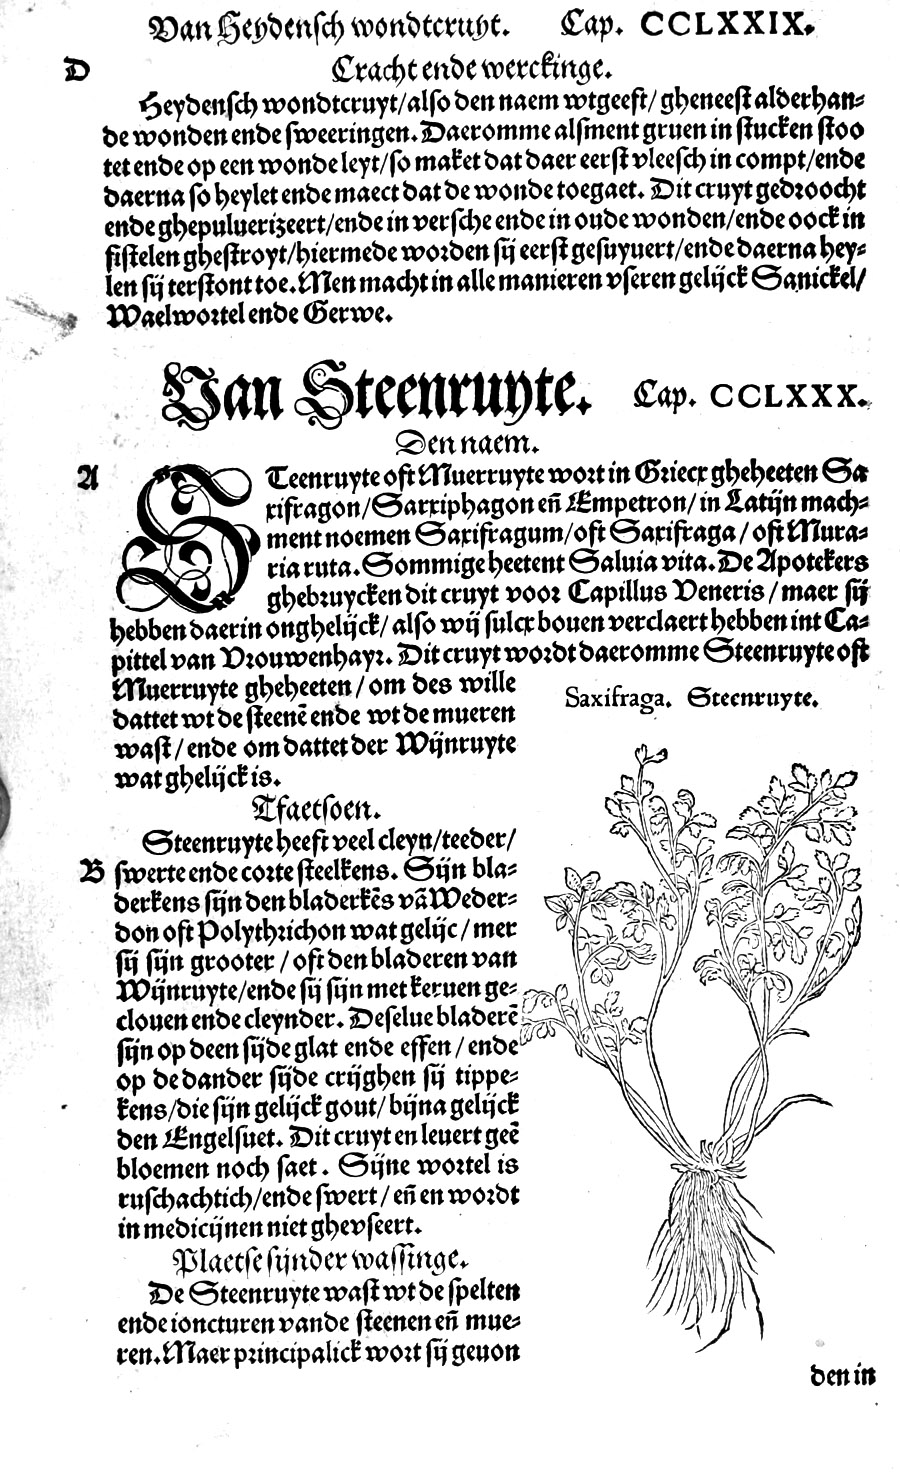 Van Heydensch wondtcruyt. Cap. CCLXXIX.
D
Cracht ende werckinge.
Heydensch wondtcruyt/also den naem wtgeeft/gheneest alderhan⸗
de wonden ende sweeringen. Daeromme alsment gruen in stucken stoo
tet ende op een wonde leyt/so maket dat daer eerst vleesch in compt/ende
daerna so heylet ende maect dat de wonde toegaet. Dit cruyt gedroocht
ende ghepuluerizeert/ende in versche ende in oude wonden/ende oock in
fistelen ghestroyt/hiermede worden sij eerst gesuyuert/ende daerna hey⸗
len sij terstont toe. Men macht in alle manieren vseren gelijck Sanickel/
Waelwortel ende Gerwe.
Van Steenruyte. Cap. CCLXXX.
Den naem.
A
STeenruyte oft Muerruyte wort in Griecx gheheeten Sa
xifragon/Sarxiphagon en̄ Empetron/in Latijn mach⸗
ment noemen Saxifragum/oft Saxifraga/oft Mura⸗
ria ruta. Sommige heetent Saluia vita. De Apotekers
ghebruycken dit cruyt voor Capillus Veneris/maer sij
hebben daerin onghelijck/also wij sulcx bouen verclaert hebben int Ca⸗
pittel van Vrouwenhayr. Dit cruyt wordt daeromme Steenruyte oft
Muerruyte gheheeten/om des wille
dattet wt de steenē ende wt de mueren
wast/ende om dattet der Wijnruyte
wat ghelijck is.
Saxifraga. Steenruyte.
Tfaetsoen.
Steenruyte heeft veel cleyn/teeder/
B
swerte ende corte steelkens. Sijn bla⸗
derkens sijn den bladerkēs vā Weder⸗
don oft Polythrichon wat gelijc/mer
sij sijn grooter/oft den bladeren van
Wijnruyte/ende sij sijn met keruen ge⸗
clouen ende cleynder. Deselue bladerē
sijn op deen sijde glat ende effen/ende
op de dander sijde crijghen sij tippe⸗
kens/die sijn gelijck gout/bijna gelijck
den Engelsuet. Dit cruyt en leuert geē
bloemen noch saet. Sijne wortel is
ruschachtich/ende swert/en̄ en wordt
in medicijnen niet ghevseert.
Plaetse sijnder wassinge.
De Steenruyte wast wt de spelten
ende ioncturen vande steenen en̄ mue⸗
ren. Maer principalick wort sij geuon
den in